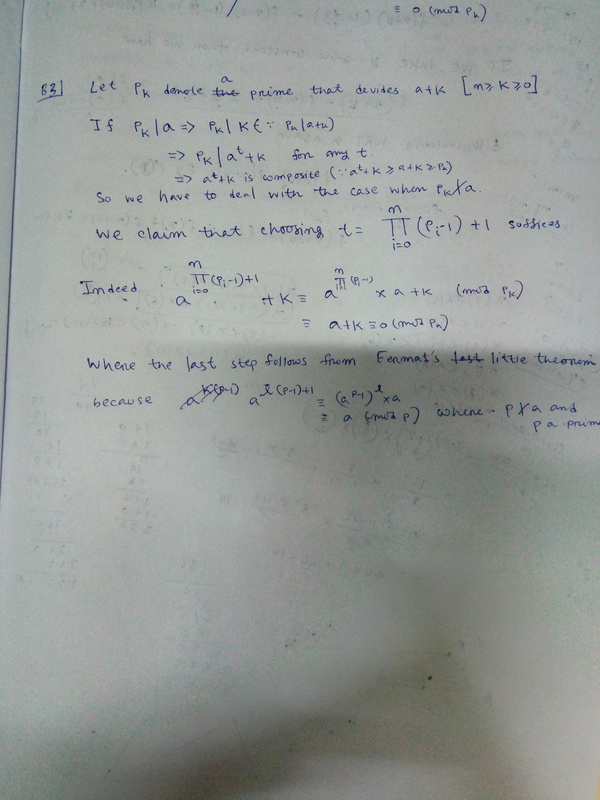 ≡ 0 (mod Pk)
B3] Let Pk denote a prime that devides a+k [n ≥ k ≥ 0]
If Pk | a => Pk | k (∵ Pk | a+k)
=> Pk | a^t+k for any t
=> a^t+k is composite (∵ a^t+k ≥ a+k ≥ Pk)
So we have to deal with the case when Pk ∤ a.
We claim that choosing t = ∏_{i=0}^{n} (Pi-1) + 1 suffices
Indeed a^{∏_{i=0}^{n} (Pi-1)+1} + k ≡ a^{∏_{i=0}^{n} (Pi-1)} × a + k (mod Pk)
≡ a+k ≡ 0 (mod Pk)
Where the last step follows from Fermat's little theorem
because a^{l(p-1)+1} ≡ (a^{p-1})^l × a
≡ a (mod p) where p ∤ a and
p a prime